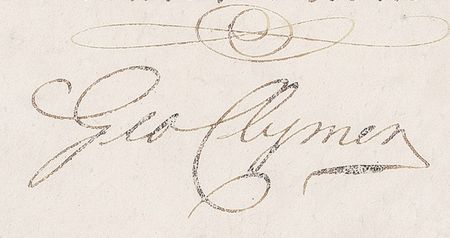 Geo Clymer